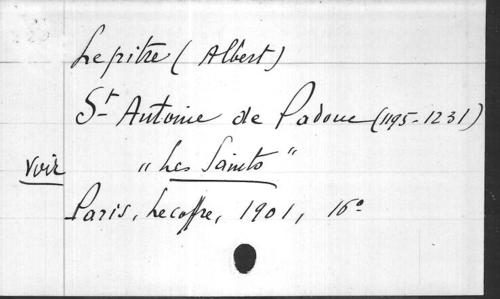 Lepitre (Albert)
St Antoine de Padoue (1195-1231)
voir "Les Saints"
Paris, Lecoffre, 1901, 16º